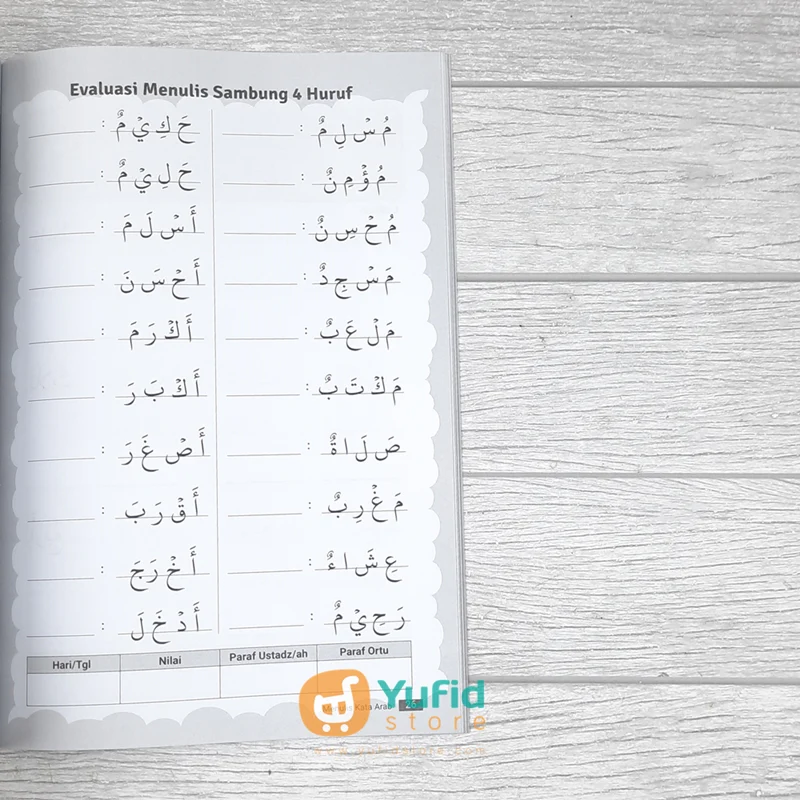 Evaluasi Menulis Sambung 4 Huruf
مُ سْ لِ مٌ : ________ حَ كِ يْ مٌ : ________
مُ ؤْ مِ نٌ : ________ حَ لِ يْ مٌ : ________
مُ حْ سِ نٌ : ________ أَ سْ لَ مَ : ________
مَ سْ جِ دٌ : ________ أَ حْ سَ نَ : ________
مَ لْ عَ بٌ : ________ أَ كْ رَ مَ : ________
مَ كْ تَ بٌ : ________ أَ كْ بَ رَ : ________
صَ لَ ا ةٌ : ________ أَ صْ غَ رَ : ________
مَ غْ رِ بٌ : ________ أَ قْ رَ بَ : ________
عِ شَ ا ءٌ : ________ أَ خْ رَ جَ : ________
رَ حِ يْ مٌ : ________ أَ دْ خَ لَ : ________
Hari/Tgl Nilai Paraf Ustadz/ah Paraf Ortu
Menulis Kata Arab 26
Yufid
store